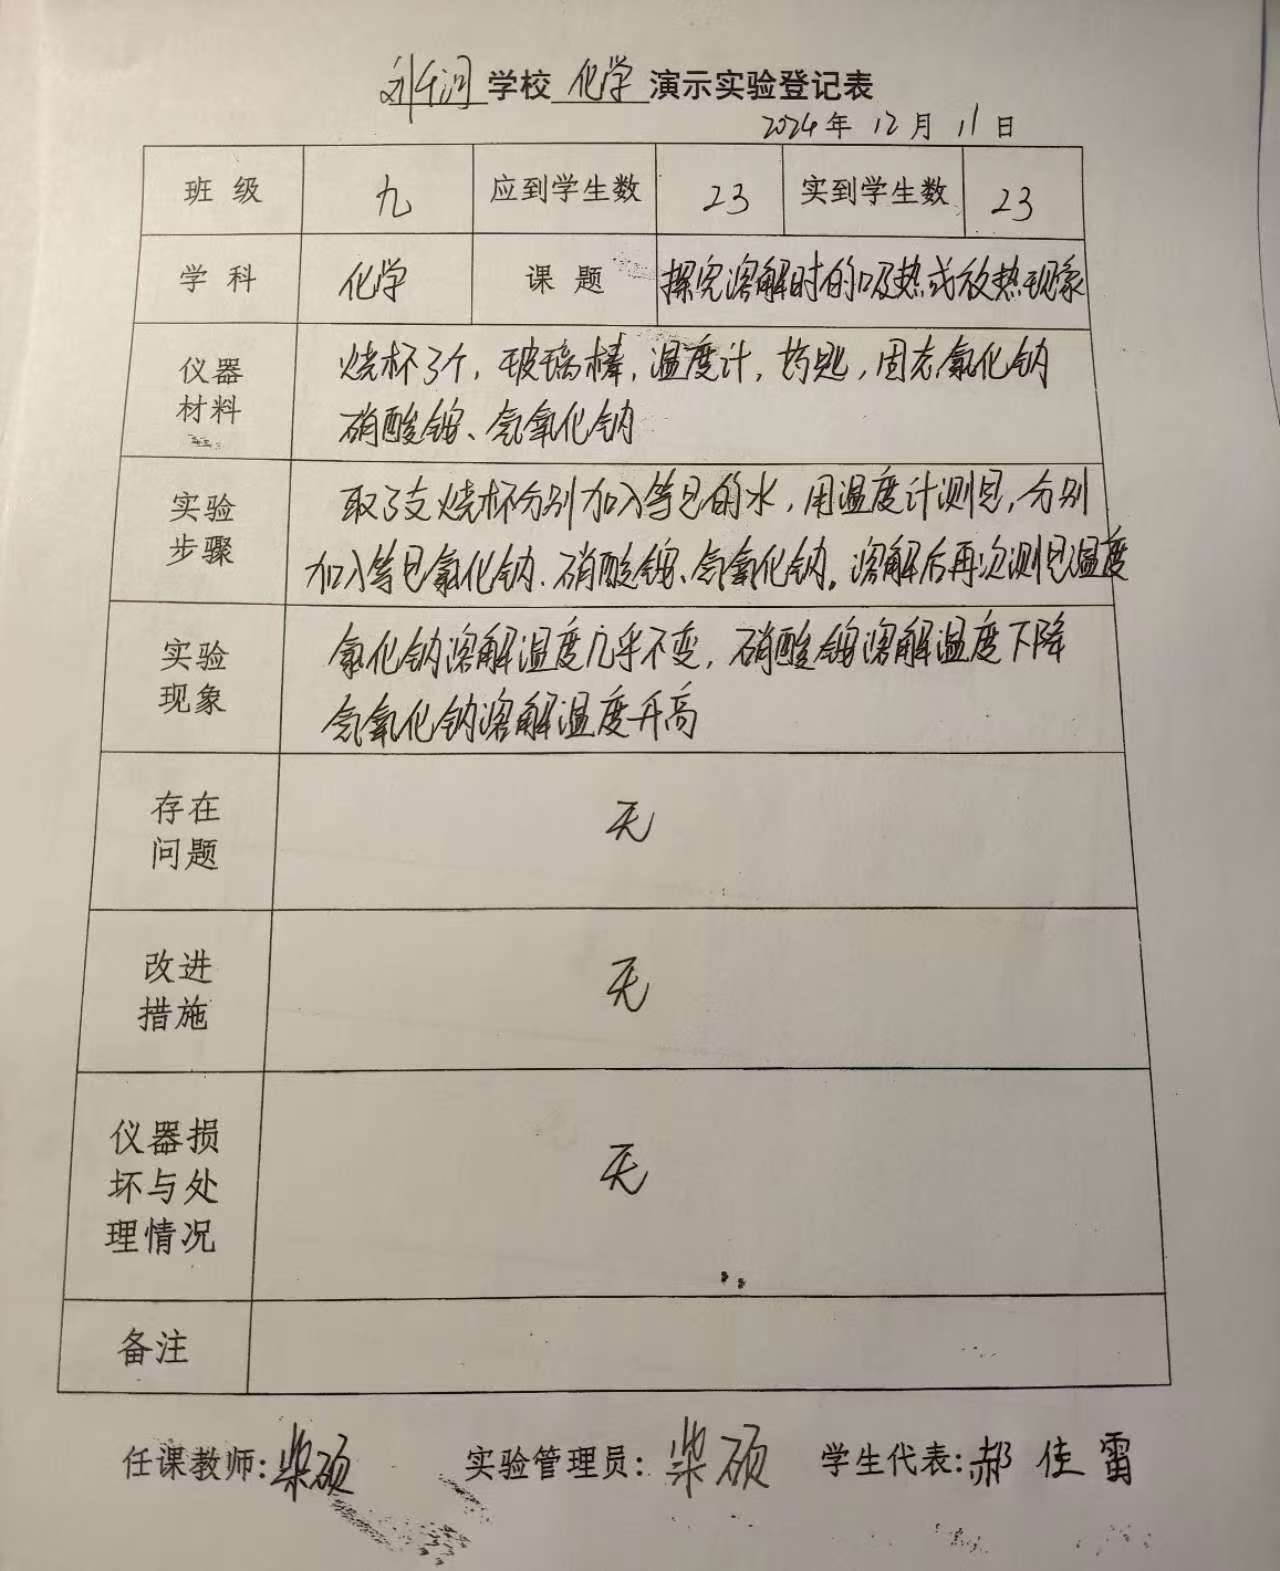 刘千河学校 化学 演示实验登记表
2024年 12月 11日
班级 九 应到学生数 23 实到学生数 23
学科 化学 课题 探究溶解时的吸热或放热现象
仪器材料 烧杯3个，玻璃棒，温度计，药匙，固态氯化钠
硝酸铵、氢氧化钠
实验步骤 取3支烧杯分别加入等量的水，用温度计测量，分别
加入等量氯化钠、硝酸铵、氢氧化钠。溶解后再次测量温度
实验现象 氯化钠溶解温度几乎不变，硝酸铵溶解温度下降
氢氧化钠溶解温度升高
存在问题 无
改进措施 无
仪器损坏与处理情况 无
备注
任课教师:柴硕 实验管理员:柴硕 学生代表:郝佳雷